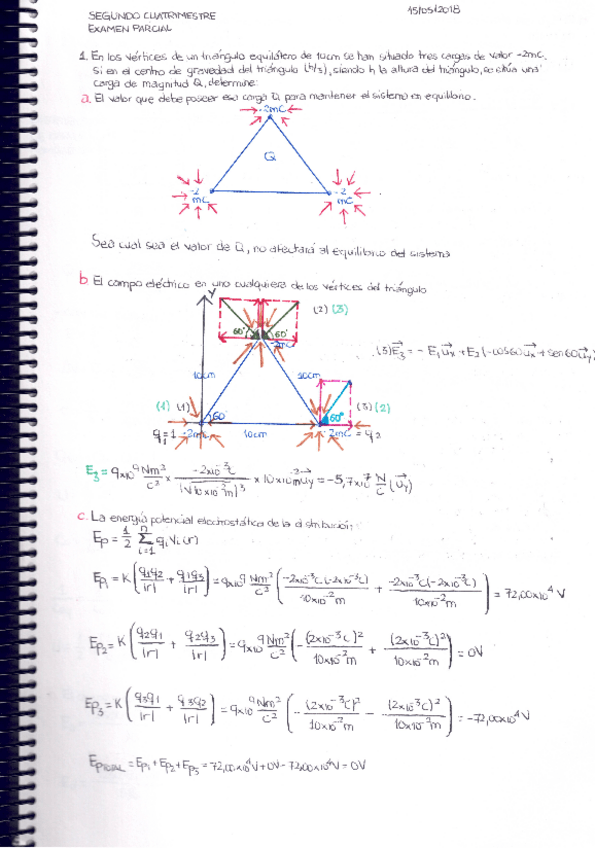 SEGUNDO CUATRIMESTRE
15/05/2018
EXAMEN PARCIAL
1. En los vértices de un triángulo equilátero de 10cm se han situado tres cargas de valor -2mC.
Si en el centro de gravedad del triángulo (h/3), siendo h la altura del triángulo, se sitúa una
carga de magnitud Q, determine:
a. El valor que debe poseer esa carga Q para mantener el sistema en equilibrio.
-2mC
Q
-2 mC
-2 mC
Sea cual sea el valor de Q, no afectará al equilibrio del sistema
b El campo eléctrico en uno cualquiera de los vértices del triángulo
Y
(2) (3)
60° 60°
-2mC
(3) E₃ = - E₁ux + E₂(-cos60ux + sen60uy)
10cm 10cm
(1) (1) 60° 60° (3) (2)
q₁=1 -2mC 10cm -2mC = q₂
E₃ = 9x10⁹ Nm²/C² x -2x10⁻³C/(√10x10⁻²m)³ x 10x10⁻²m uy = -5,7x10⁷ N/C (uy)
c. La energía potencial electrostática de la distribución:
Ep = 1/2 Σ qiVi(r)
n
i=1
Ep₁ = K(q₁q₂/|r| + q₁q₃/|r|) = 9x10⁹ Nm²/C² (-2x10⁻³C·(-2x10⁻³C)/10x10⁻²m + -2x10⁻³C(-2x10⁻³C)/10x10⁻²m) = 72,00x10⁴ V
Ep₂ = K(q₂q₁/|r| + q₂q₃/|r|) = 9x10⁹ Nm²/C² (-(2x10⁻³C)²/10x10⁻²m + (2x10⁻³C)²/10x10⁻²m) = 0V
Ep₃ = K(q₃q₁/|r| + q₃q₂/|r|) = 9x10⁹ Nm²/C² (-(2x10⁻³C)²/10x10⁻²m - (2x10⁻³C)²/10x10⁻²m) = -72,00x10⁴V
EpTOTAL = Ep₁ + Ep₂ + Ep₃ = 72,00x10⁴V + 0V - 72,00x10⁴V = 0V